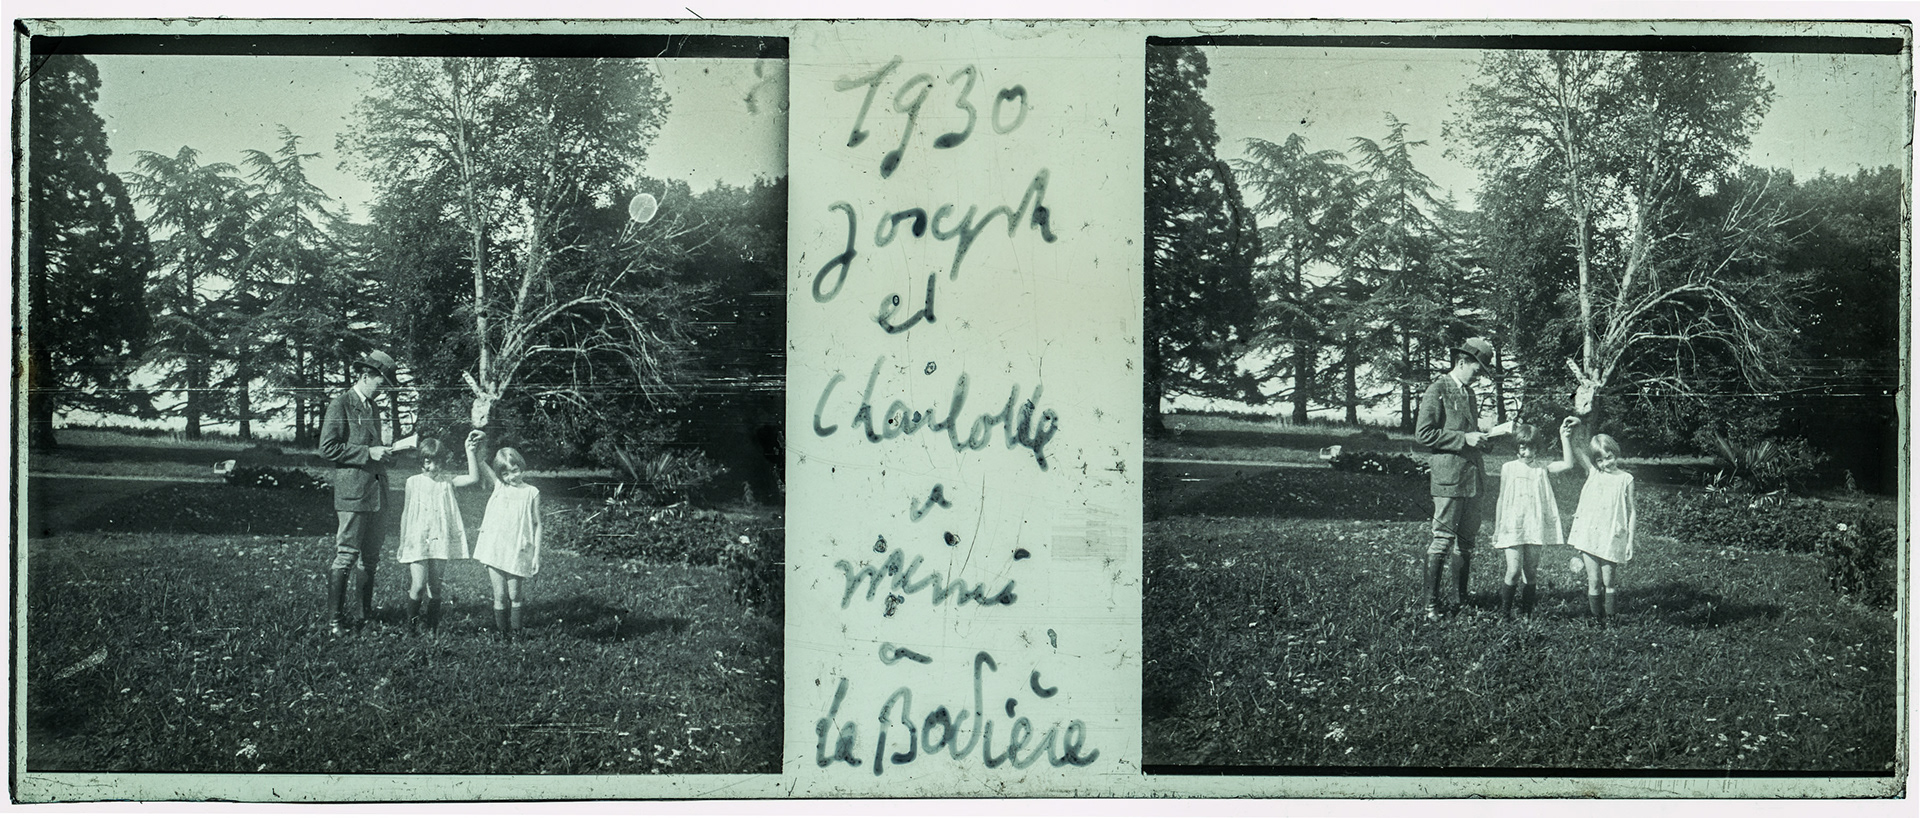 1930
Joseph
et
Charlotte
Mimi
à
La Bodière